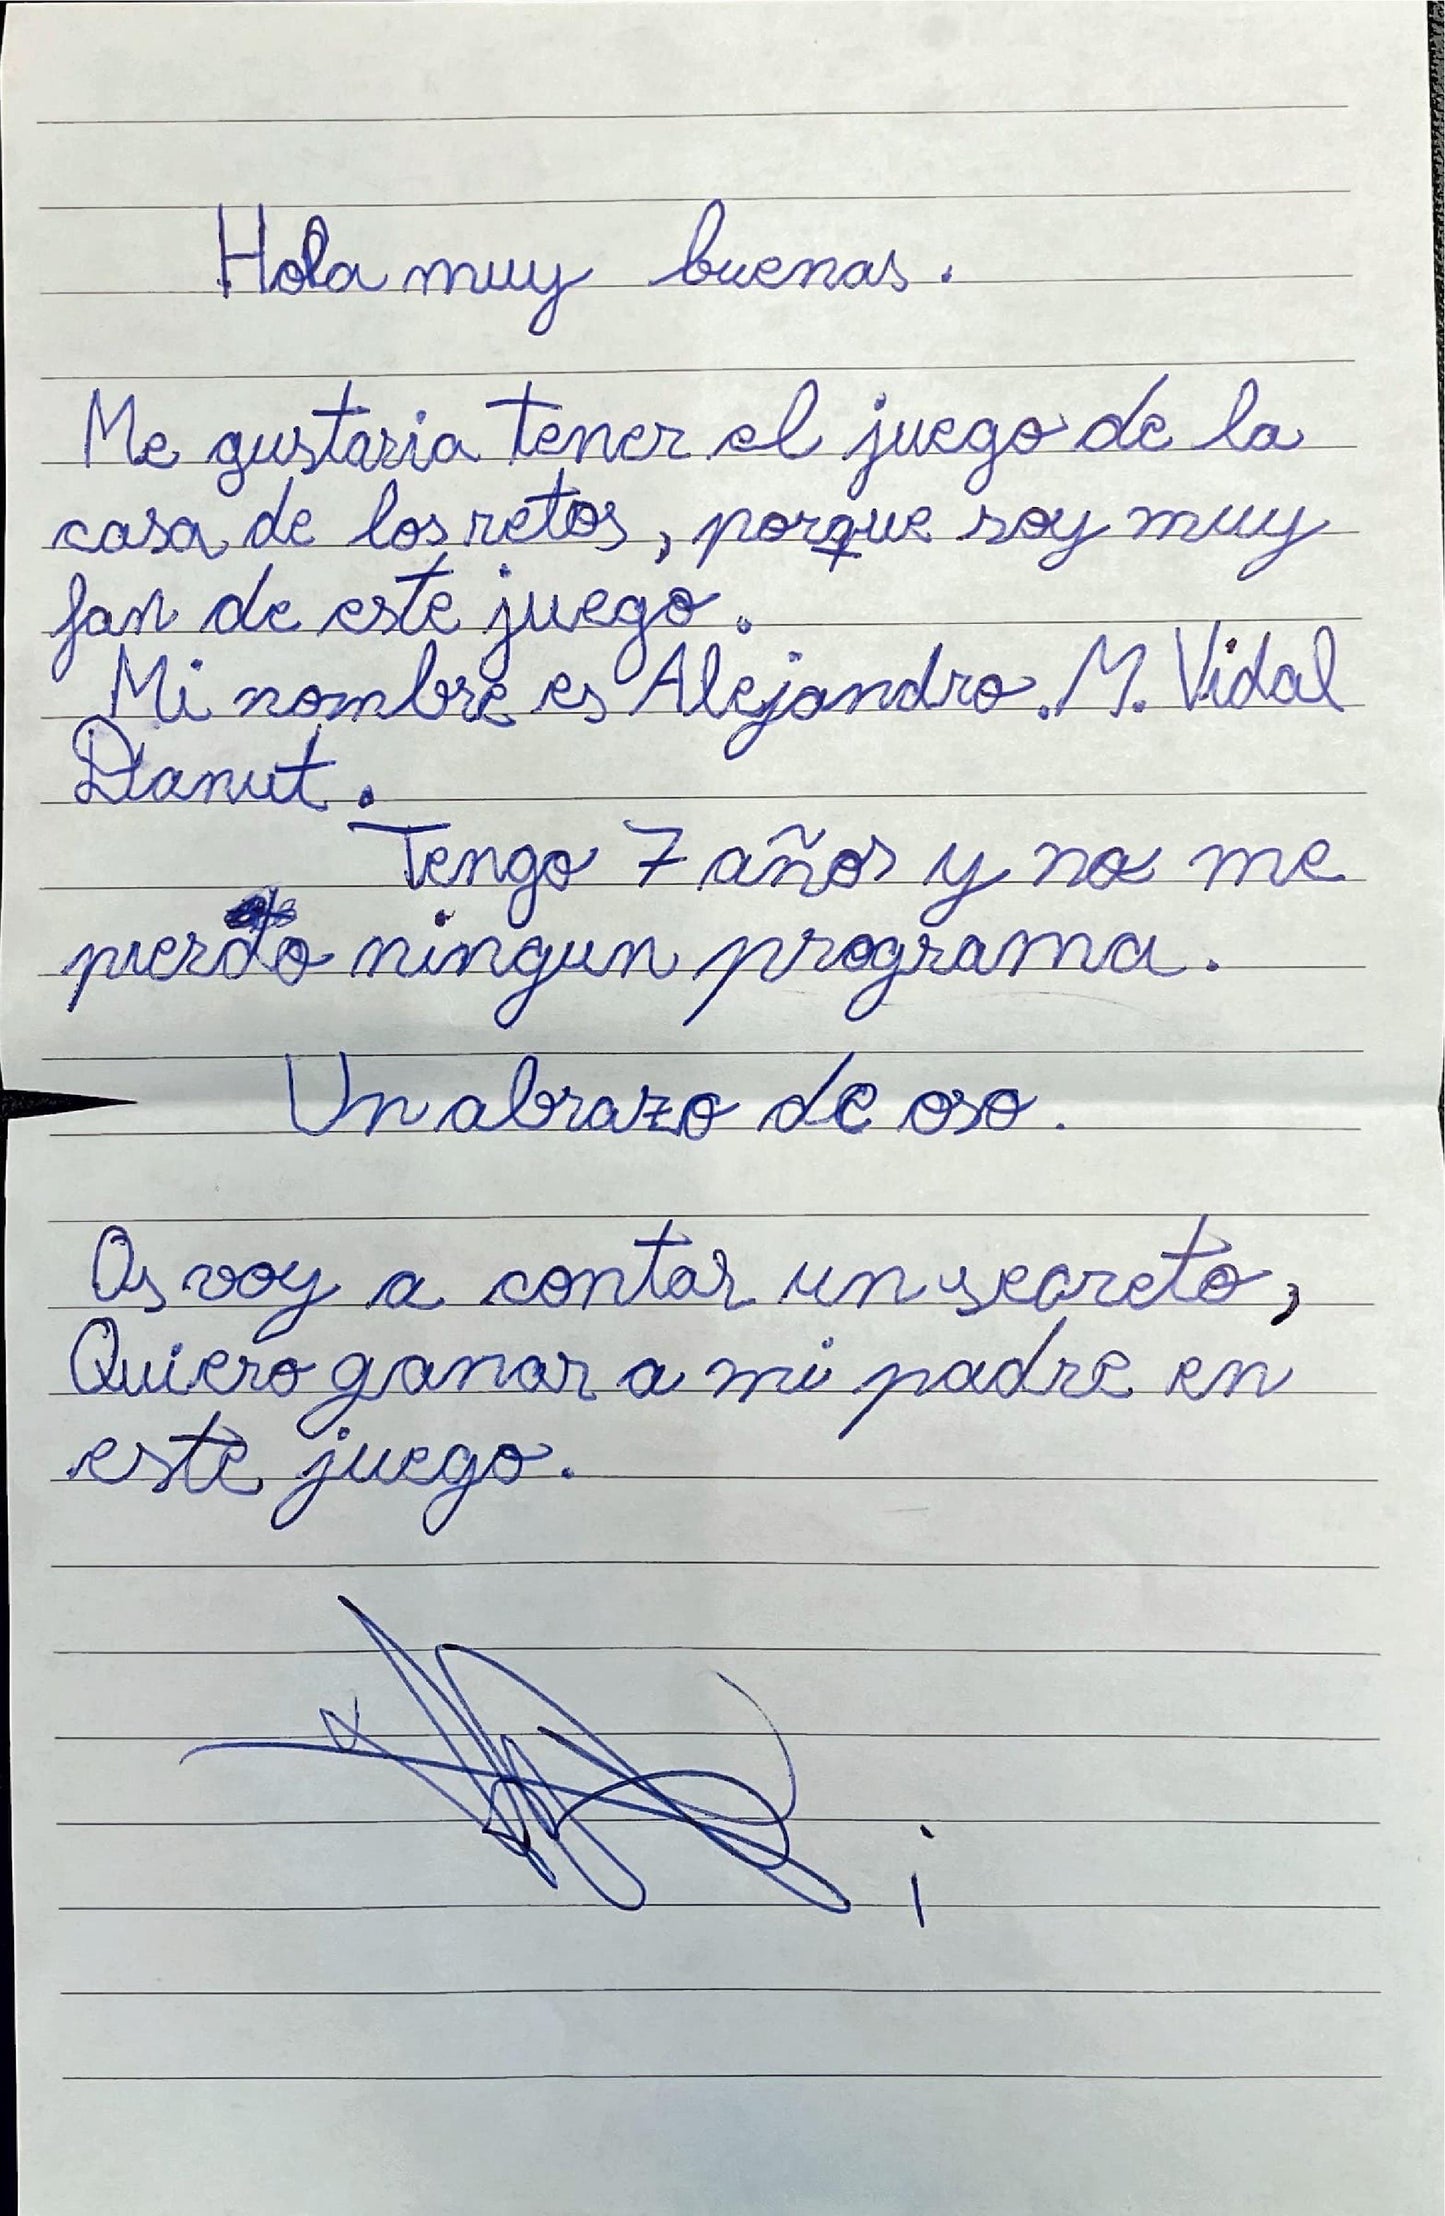 Hola muy buenas.
Me gustaria tener el juego de la
casa de los retos, porque soy muy
fan de este juego.
Mi nombre es Alejandro. M. Vidal
Danut.
Tengo 7 años y no me
pierdo ningun programa.
Un abrazo de oso.
Os voy a contar un secreto,
Quiero ganar a mi padre en
este juego.